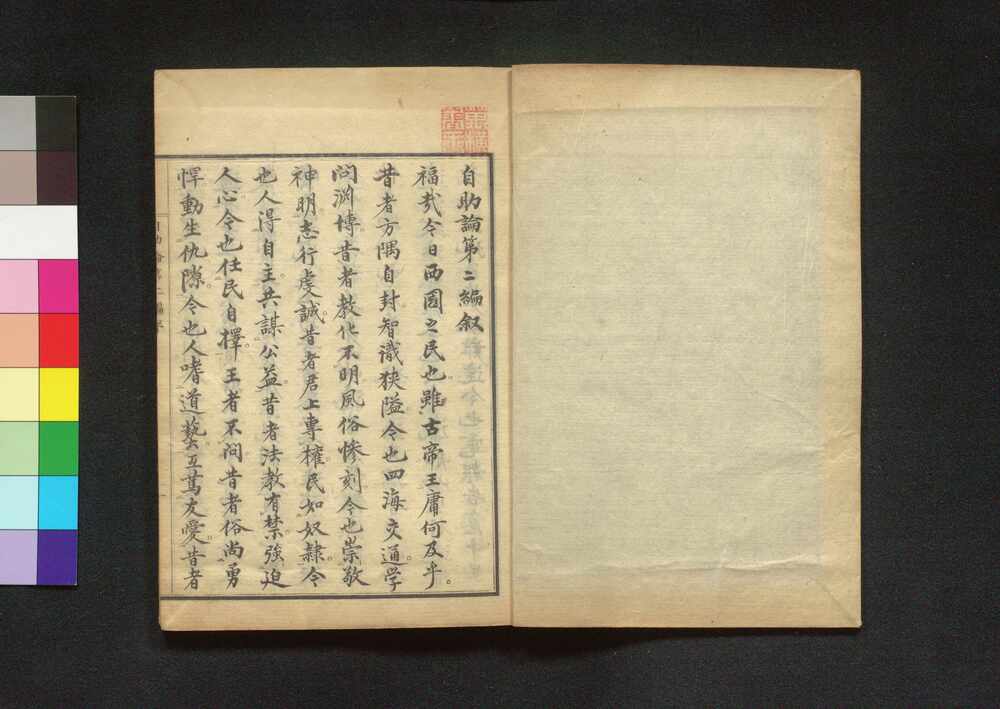 自助論第二編叙
福哉今日西國之民也雖古帝王庸何及乎。
昔者方隅自封智識狹隘。今也四海交通。学
問淵博昔者教化不明風俗慘刻今也崇敬
神明志行虔誠。昔者君上專權。民如奴隷。今
也人得自主。共謀公益昔者法教有禁強迫
人心今也任民自擇。王者不问昔者俗尚勇
悍動生仇隙。今也人嗜道藝。互篤友愛。昔者